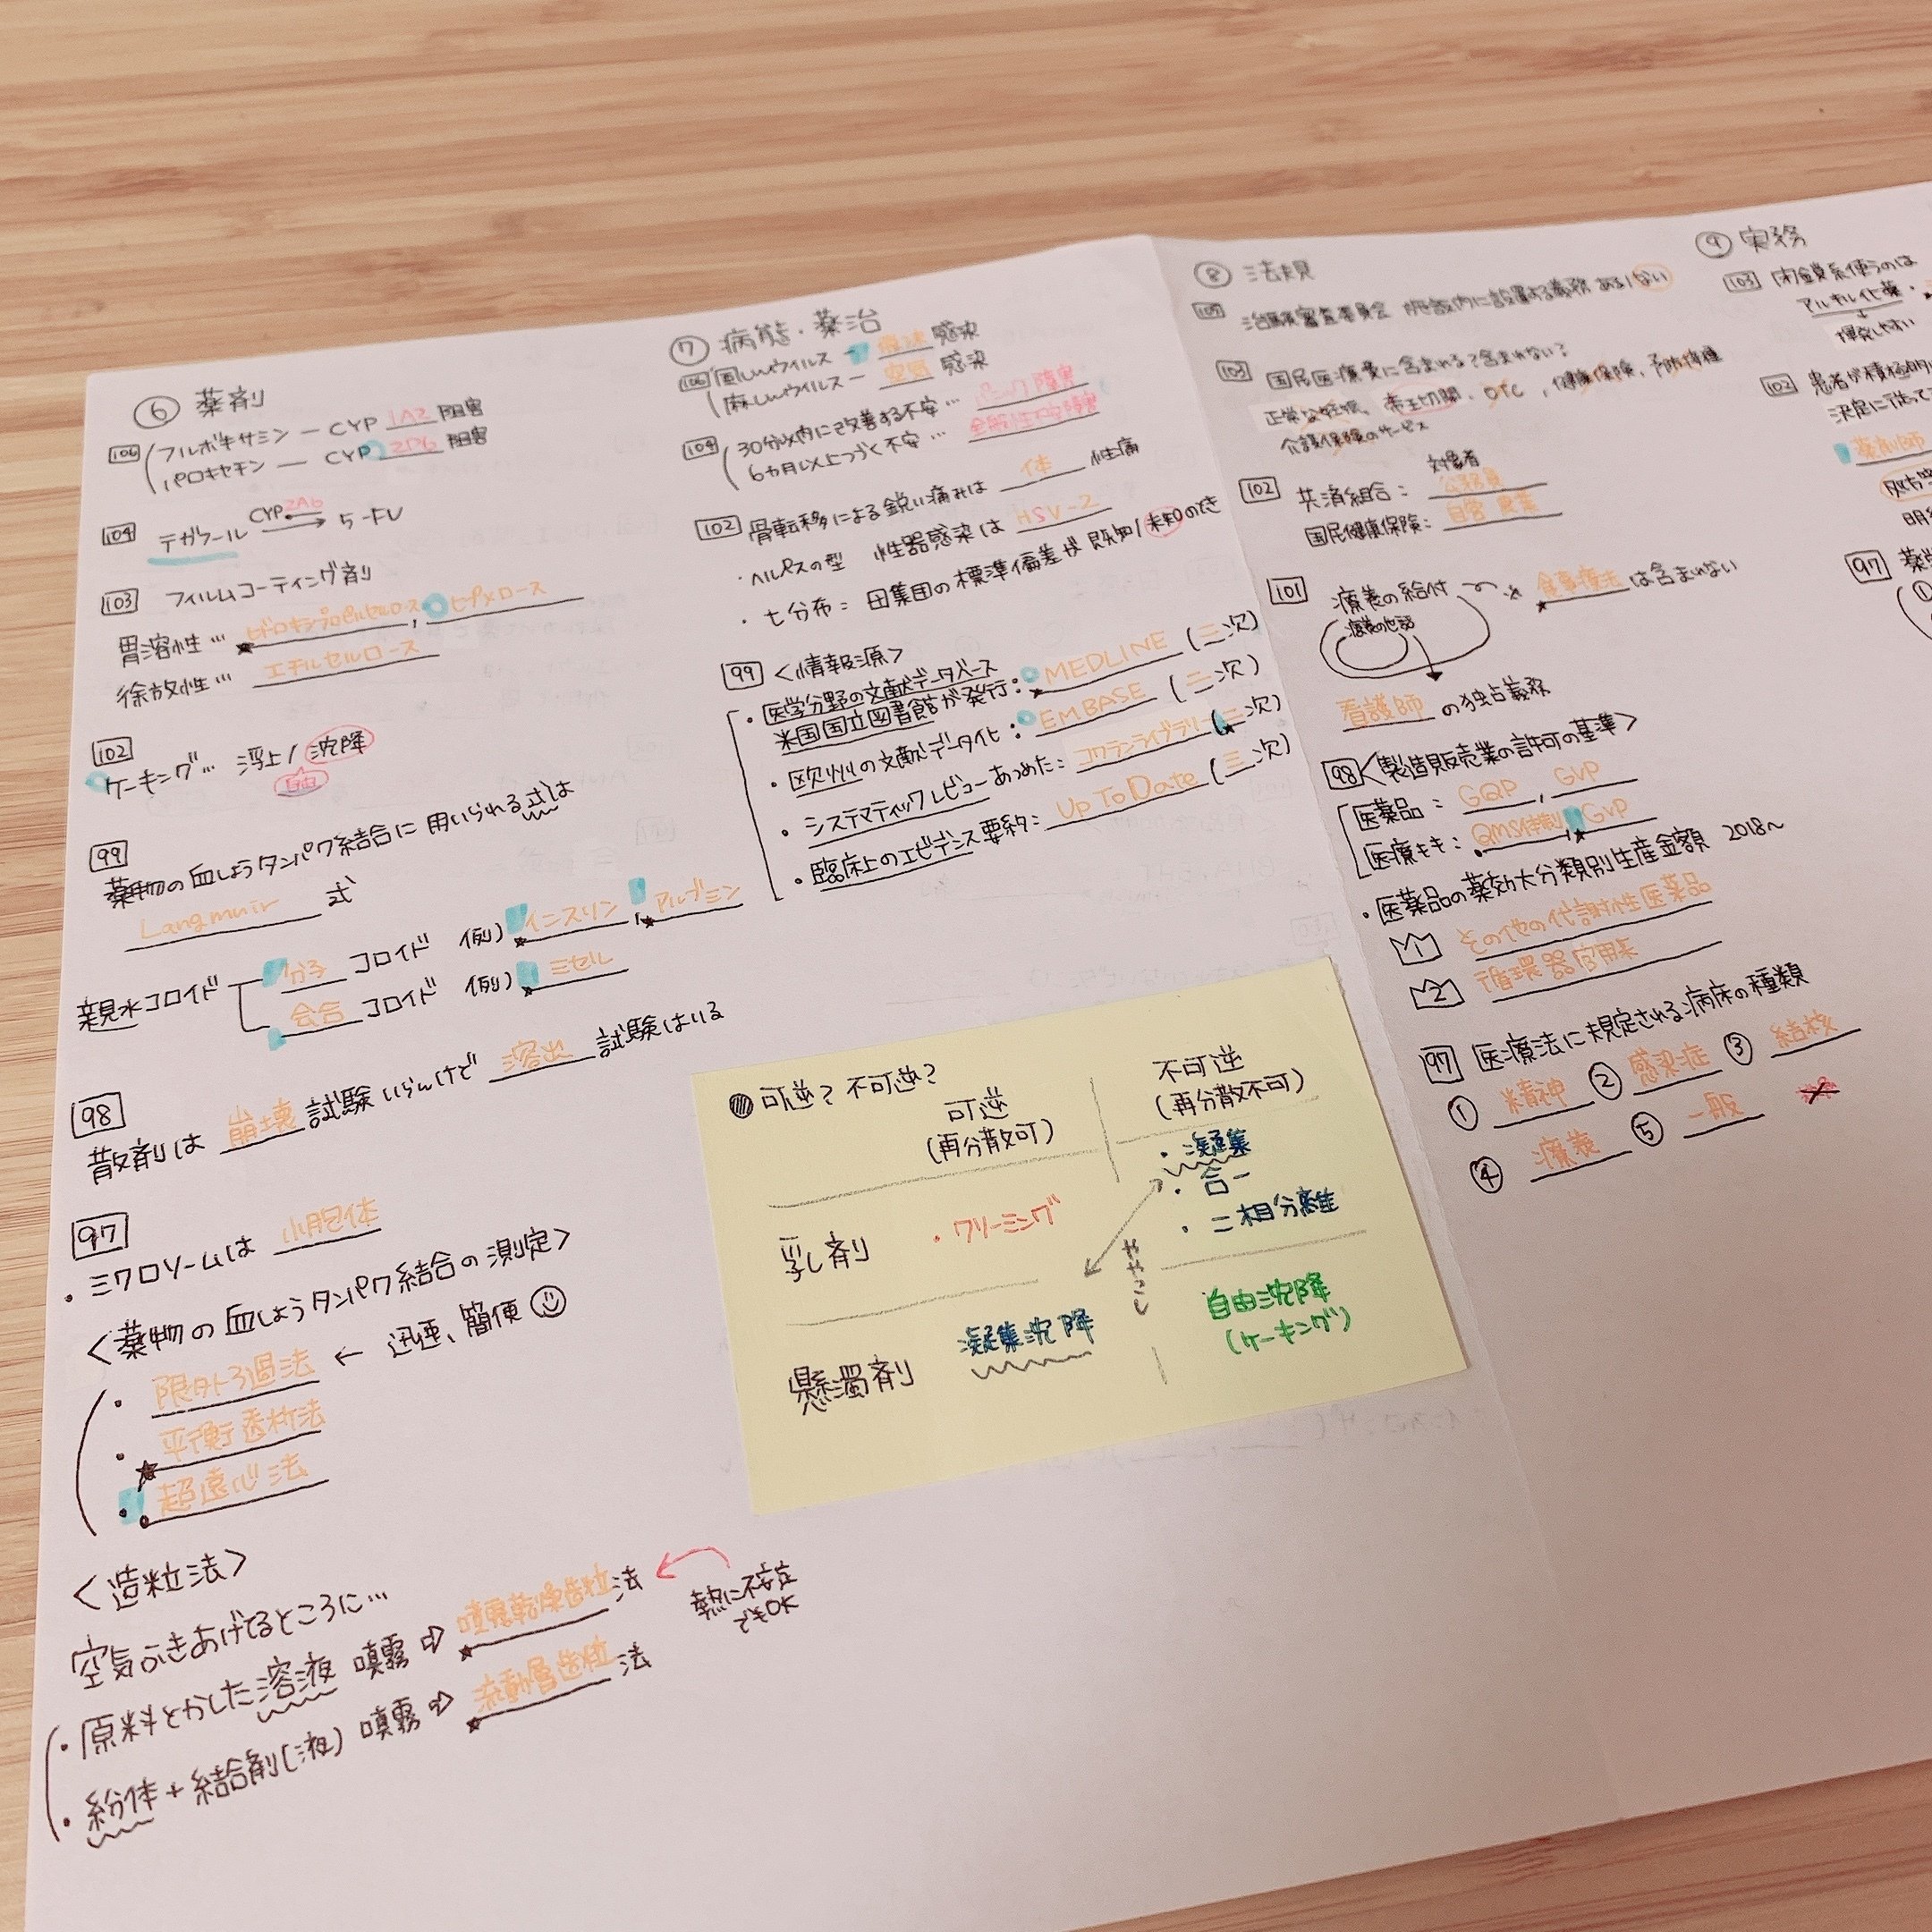 ⑥ 薬剤
106 フルボキサミン ― CYP 1A2 阻害
パロキセチン ― CYP 2D6 阻害
104 テガフール CYP2A6 → 5-FU
103 フィルムコーティング剤
胃溶性… ヒドロキシプロピルセルロース, ヒプメロース
徐放性… エチルセルロース
102
ケーキング… 浮上 / 沈降
自由
99
薬物の血しょうタンパク結合に用いられる式は
Langmuir 式
親水コロイド 分子 コロイド 例) インスリン, アルブミン
会合 コロイド 例) ミセル
98
散剤は 崩壊 試験いらんけど 溶出 試験はいる
97
・ミクロソームは 小胞体
<薬物の血しょうタンパク結合の測定>
・限外ろ過法 ← 迅速、簡便
・平衡透析法
・超遠心法
<造粒法>
空気ふきあげてるところに…
・原料とかした溶液 噴霧 ⇨ 噴霧乾燥造粒法
熱に不安定
でもOK
・粉体+結合剤(液) 噴霧 ⇨ 流動層造粒法
⑦ 病態・薬治
106 風しんウイルス ― 飛沫 感染
麻しんウイルス ― 空気 感染
104 30分以内に改善する不安… パニック障害
6カ月以上つづく不安… 全般性不安障害
102 骨転移による鋭い痛みは 体 性痛
・ヘルペスの型 性器感染は HSV-2
・t分布: 母集団の標準偏差が 既知 / 未知のとき
99 <情報源>
・医学分野の文献データベース
米国国立図書館が発行: MEDLINE (二次)
・欧州の文献データ化: EMBASE (二次)
・システマティックレビューあつめた: コクランライブラリー (三次)
・臨床上のエビデンス要約: UpToDate (三次)
● 可逆? 不可逆?
可逆
(再分散可)
不可逆
(再分散不可)
乳剤
・クリーミング
・凝集
・合一
・二相分離
ややこし
懸濁剤
凝集沈降
自由沈降
(ケーキング)
⑧ 法規
治験審査委員会 施設内に設置する義務 ある/ない
103 国民医療費に含まれる?含まれない?
正常な妊娠、帝王切開、OTC, 健康保険, 予防接種
介護保険のサービス
102
対象者
共済組合: 公務員
国民健康保険: 自営 農業
101 療養の給付 食事療法 は含まれない
療養の世話
看護師 の独占義務
98 <製造販売業の許可の基準>
医薬品: GQP, GVP
医療キキ: QMS体制, GVP
・医薬品の薬効大分類別生産金額 2018~
1 その他の代謝性医薬品
2 循環器官用薬
97 医療法に規定される病床の種類
① 精神 ② 感染症 ③ 結核
④ 療養 ⑤ 一般
⑨ 実務
103 閉鎖系使うのは
アルキル化薬・
揮発しやすい
102 患者が積極的
決定に従って
薬剤師
97